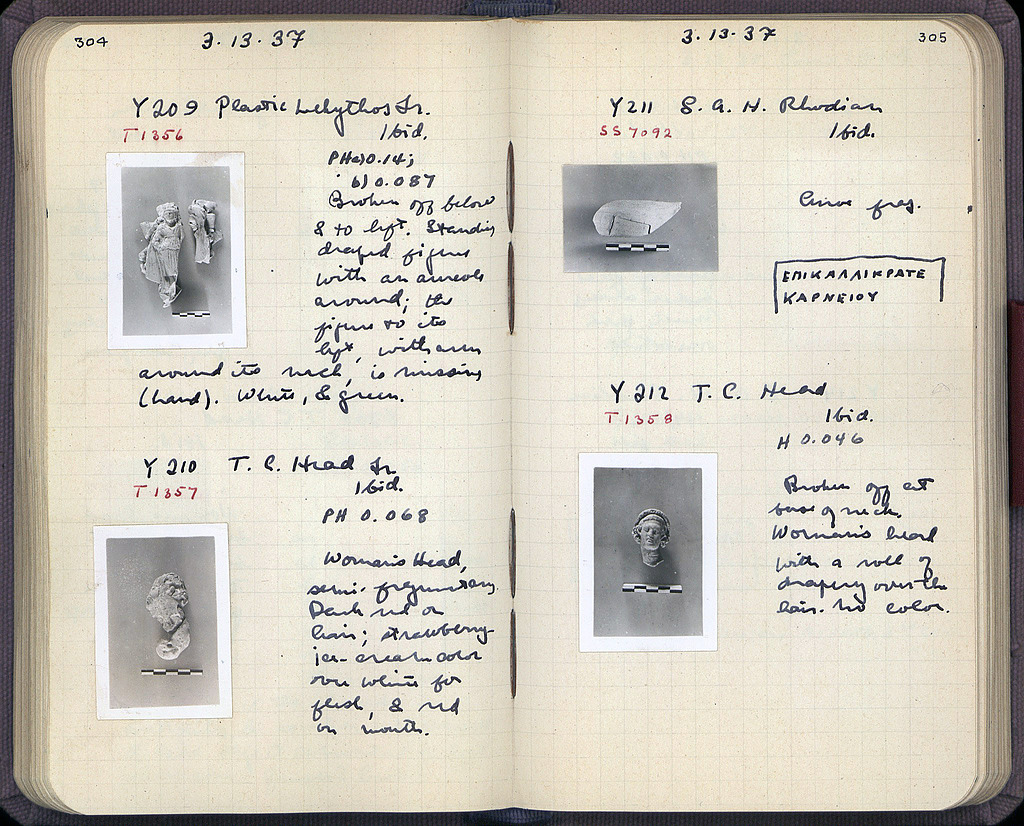 304
3·13·37
Y 209 Plastic Lekythos Fr.
T 1356
Ibid.
PH a) 0.14;
b) 0.087
Broken off below
& to left. Standing
draped figure
with an aureole
around; the
figure to its
left, with arm
around its neck, is missing
(hand). White, & green.
Y 210 T. C. Head Fr.
T 1357
Ibid.
PH 0.068
Woman's Head,
semi-fragmentary.
Dark red on
hair; strawberry-
ice-cream color
over white for
flesh, & red
on mouth.
3·13·37
305
Y 211 S. A. H. Rhodian
SS 7092
Ibid.
Curve frag.
ΕΠΙΚΑΛΛΙΚΡΑΤΕ
ΚΑΡΝΕΙΟΥ
Y 212 T. C. Head
T 1358
Ibid.
H 0.046
Broken off at
base of neck.
Woman's head
with a roll of
drapery over the
hair. No color.